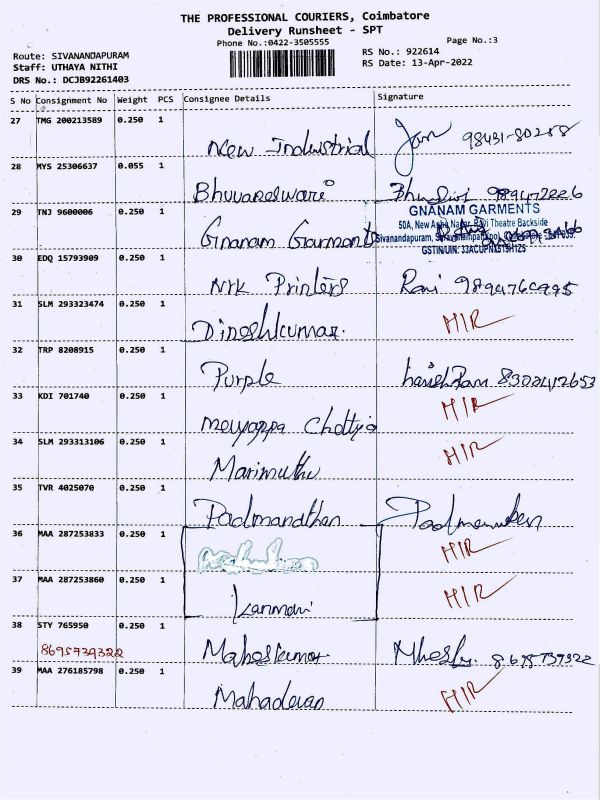 THE PROFESSIONAL COURIERS, Coimbatore
Delivery Runsheet - SPT
Phone No.:0422-3505555
Page No.:3
Route: SIVANANDAPURAM
RS No.: 922614
Staff: UTHAYA NITHI
RS Date: 13-Apr-2022
DRS No.: DCJB92261403
S No Consignment No Weight PCS Consignee Details Signature
27 TMG 200213589 0.250 1
New Industrial
28 MYS 25306637 0.055 1
Bhuvaneshwari
29 TNJ 9600006 0.250 1
GNANAM GARMENTS
Gnanam Garments
30 EDQ 15793909 0.250 1
Nrk Printers Ravi
31 SLM 293323474 0.250 1
Dineshkumar. HIR
32 TRP 8208915 0.250 1
Purple harish Ram
33 KDI 701740 0.250 1
HIR
34 SLM 293313106 0.250 1
Marimuthu HIR
35 TVR 4025070 0.250 1
Padmanathan
36 MAA 287253833 0.250 1
HIR
37 MAA 287253860 0.250 1
Kanmani HIR
38 STY 765950 0.250 1
8695739322 Maheskumar 8695739322
39 MAA 276185798 0.250 1
Mahadevan HIR